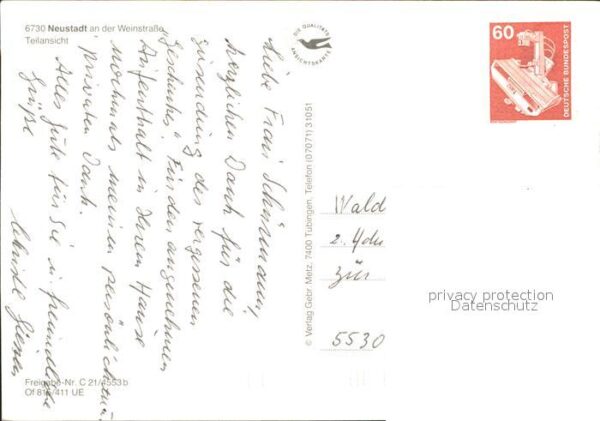 6730 Neustadt an der Weinstraße
Teilansicht
DIE QUALITÄTS
ANSICHTSKARTE
60
DEUTSCHE BUNDESPOST
Liebe Frau Schürmann,
herzlichen Dank für die
Zusendung der vergessenen
"Geschichte". Für den angenehmen
Aufenthalt in Ihrem Hause
nochmals meinen persönlichen u.
privaten Dank.
Alles Gute für Sie u. freundliche
Grüße
© Verlag Gebr. Metz, 7400 Tübingen, Telefon (07071) 31051
Wald
2.
zur
5530
privacy protection
Datenschutz
Freigabe-Nr. C 21/4553 b
Of 816/411 UE